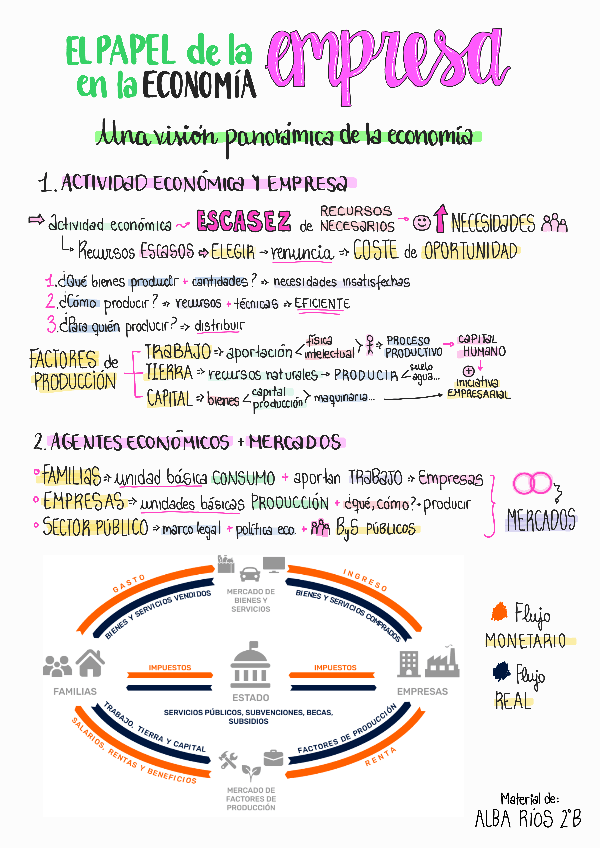 EL PAPEL de la empresa
en la ECONOMÍA
Una visión panorámica de la economía
1. ACTIVIDAD ECONÓMICA Y EMPRESA
⇨ actividad económica ⤳ ESCASEZ de RECURSOS NECESARIOS → ☺ ↑ NECESIDADES
↳ Recursos ESCASOS ⇨ ELEGIR → renuncia → COSTE de OPORTUNIDAD
1. ¿Qué bienes producir + cantidades? → necesidades insatisfechas
2. ¿Cómo producir? → recursos + técnicas → EFICIENTE
3. ¿Para quién producir? → distribuir
FACTORES de PRODUCCIÓN
TRABAJO ⇨ aportación < física intelectual > → PROCESO PRODUCTIVO → CAPITAL HUMANO
TIERRA ⇨ recursos naturales → PRODUCIR < suelo agua...
⊕ iniciativa EMPRESARIAL
CAPITAL ⇨ bienes < capital producción > maquinaria... →
2. AGENTES ECONÓMICOS + MERCADOS
° FAMILIAS ⇨ unidad básica CONSUMO + aportan TRABAJO → Empresas
° EMPRESAS ⇨ unidades básicas PRODUCCIÓN + ¿qué, cómo? + producir
° SECTOR PÚBLICO ⇨ marco legal + política eco. + ByS PÚBLICOS
MERCADOS
GASTO
BIENES Y SERVICIOS VENDIDOS
MERCADO DE
BIENES Y
SERVICIOS
INGRESO
BIENES Y SERVICIOS COMPRADOS
IMPUESTOS
IMPUESTOS
FAMILIAS
ESTADO
EMPRESAS
SERVICIOS PÚBLICOS, SUBVENCIONES, BECAS,
SUBSIDIOS
TRABAJO, TIERRA Y CAPITAL
SALARIOS, RENTAS Y BENEFICIOS
FACTORES DE PRODUCCIÓN
RENTA
MERCADO DE
FACTORES DE
PRODUCCIÓN
Flujo
MONETARIO
Flujo
REAL
Material de:
ALBA RÍOS 2ºB